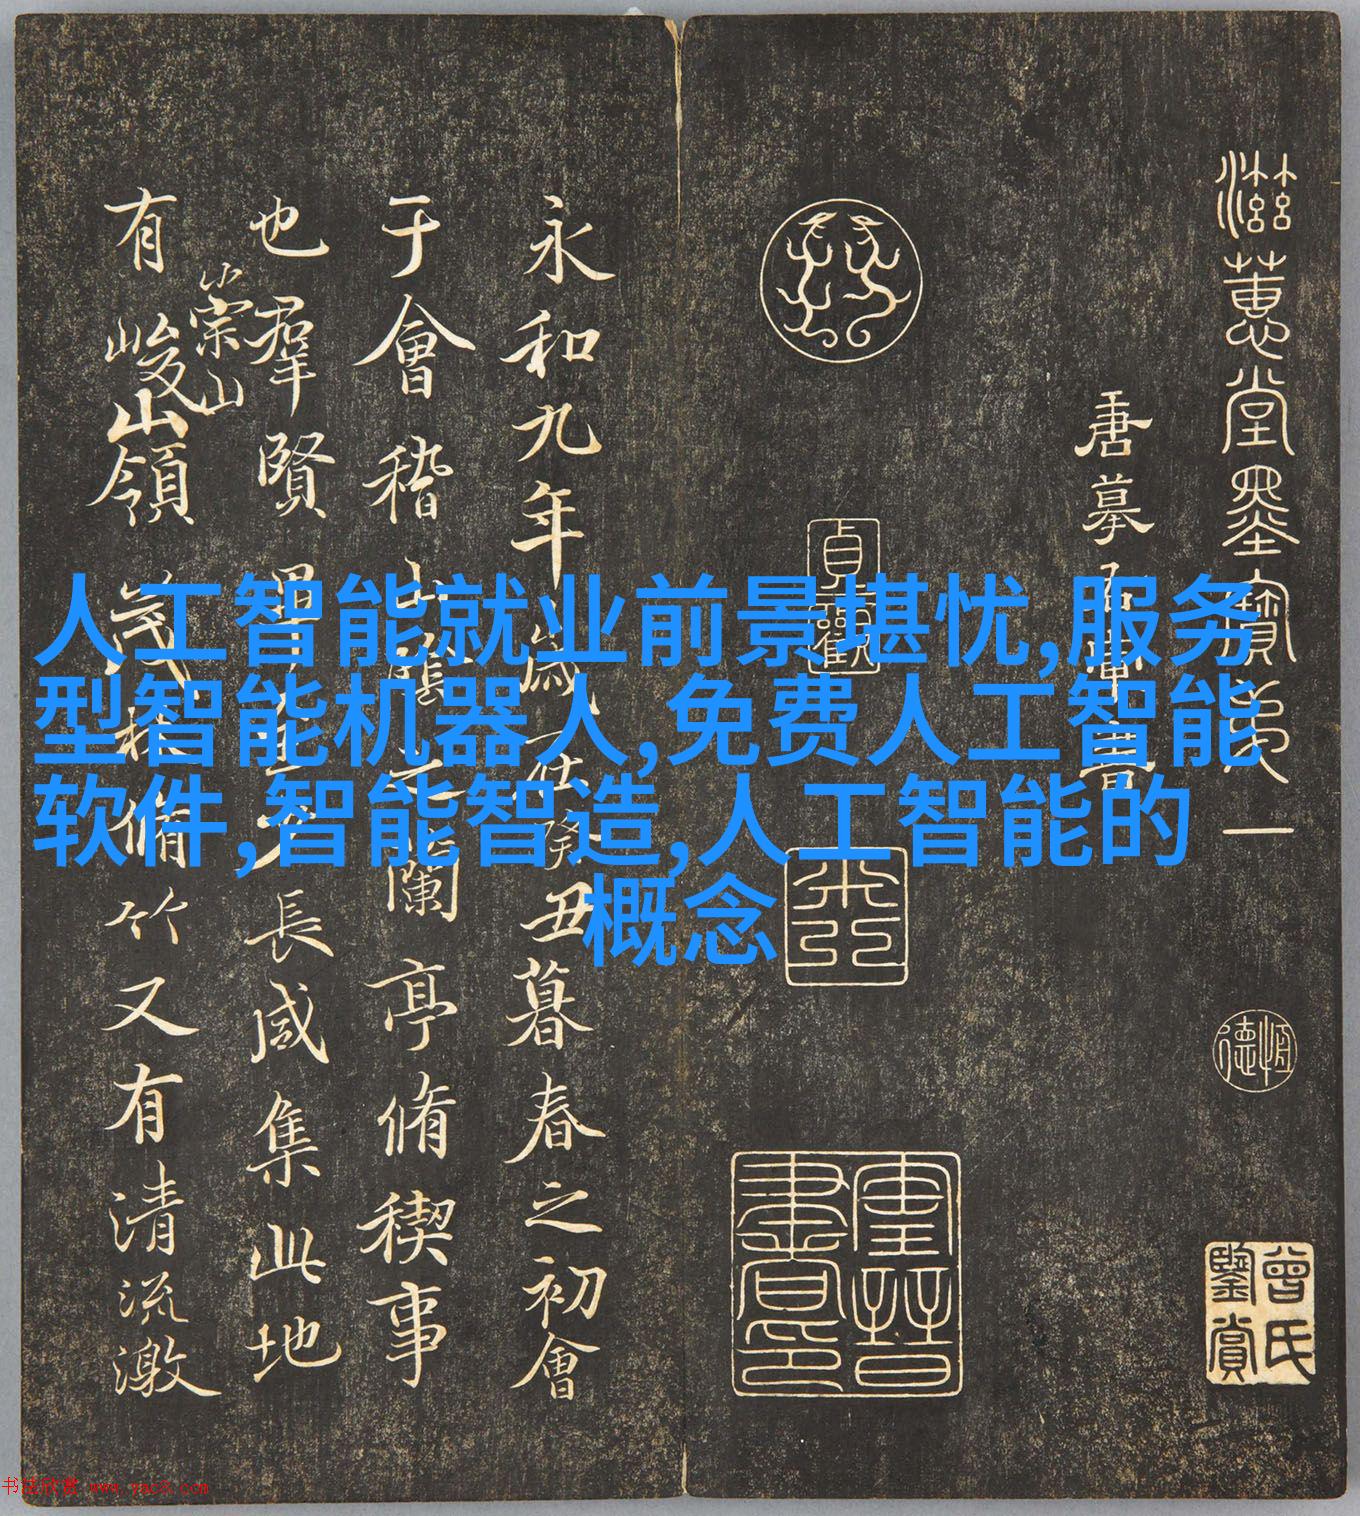 滋蕙堂墨寶卷一
唐摹石軍書
貞觀
恒德
曾氏鑒賞
永和九年歲在癸丑暮春之初會
于會稽山陰之蘭亭脩禊事
也群賢畢至少長咸集此地
有崇山峻山領茂林脩竹又有清流激
人工智能就业前景堪忧,服务
型智能机器人,免费人工智能
软件,智能智造,人工智能的
概念
书法欣赏 www.yac8.com